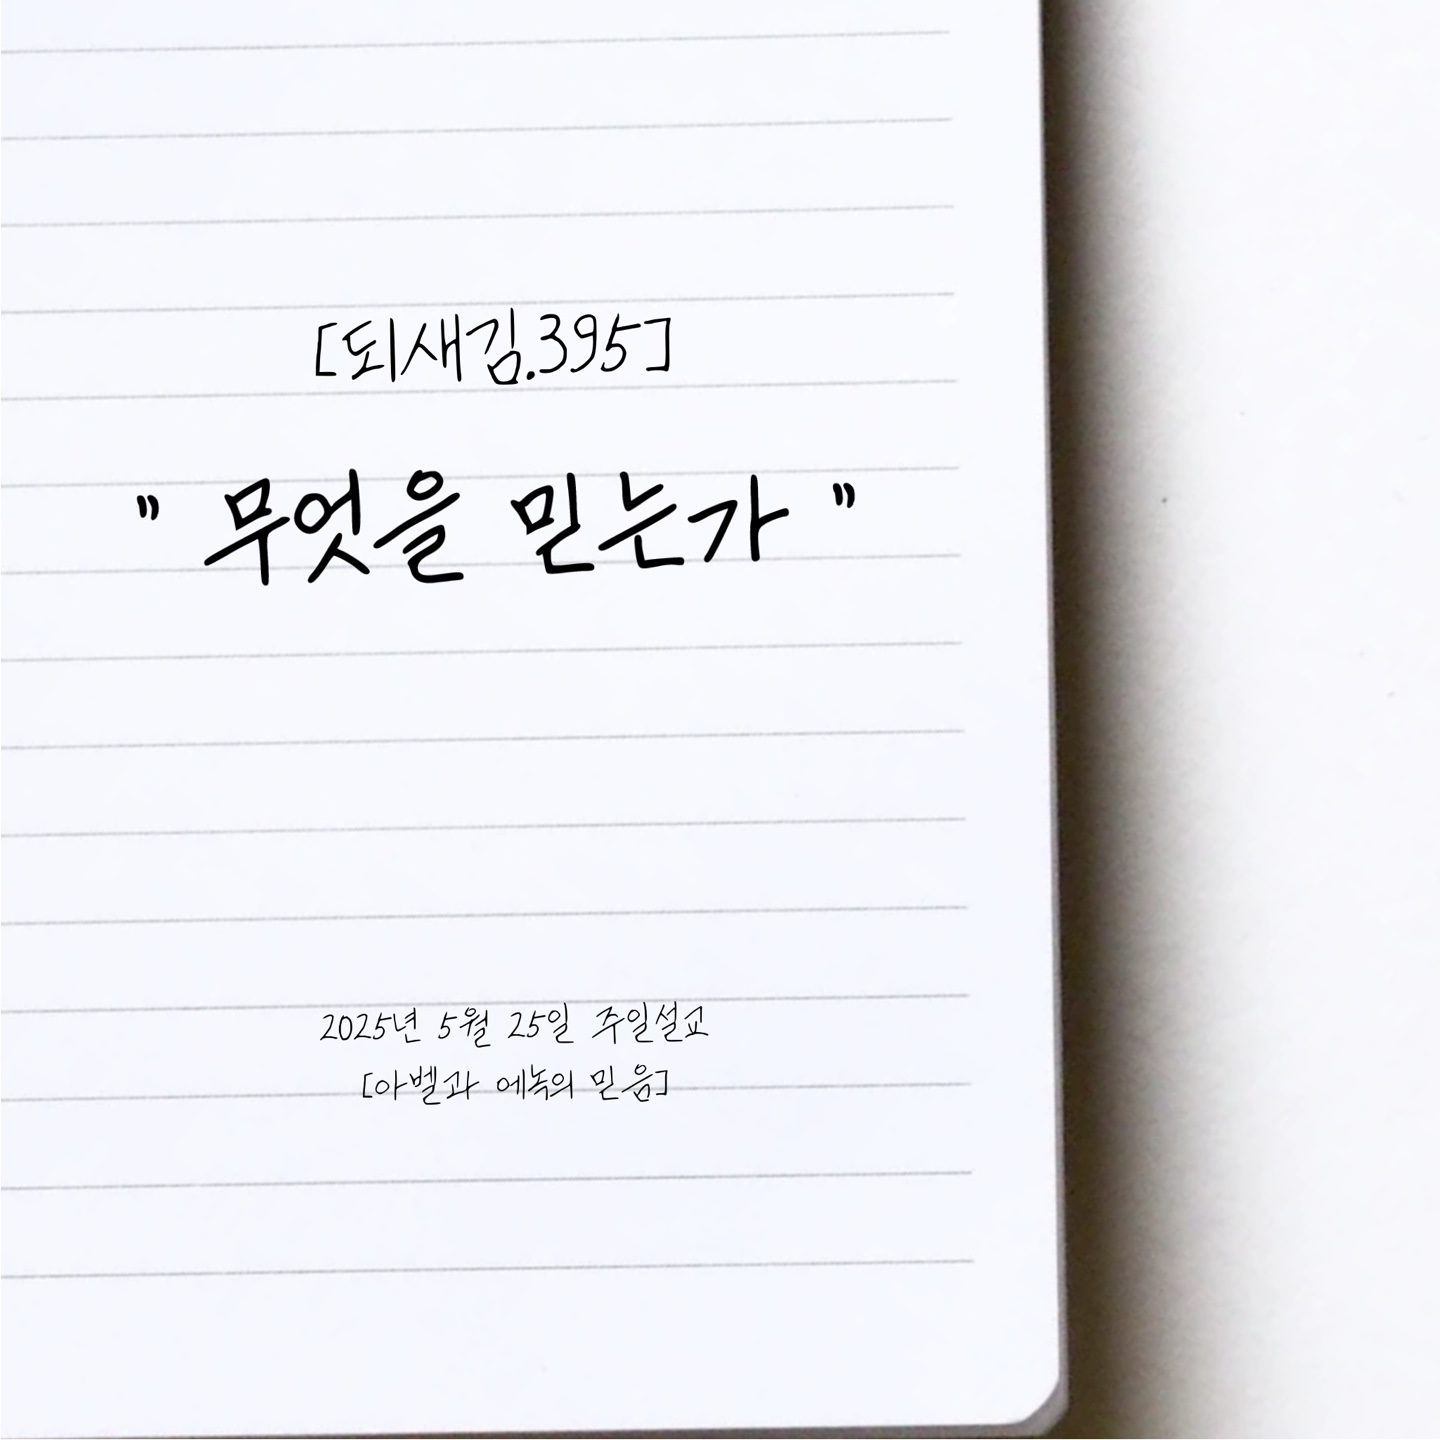 [되새김.395]
" 무엇을 믿는가 "
2025년 5월 25일 주일설교
[아벨과 에녹의 믿음]